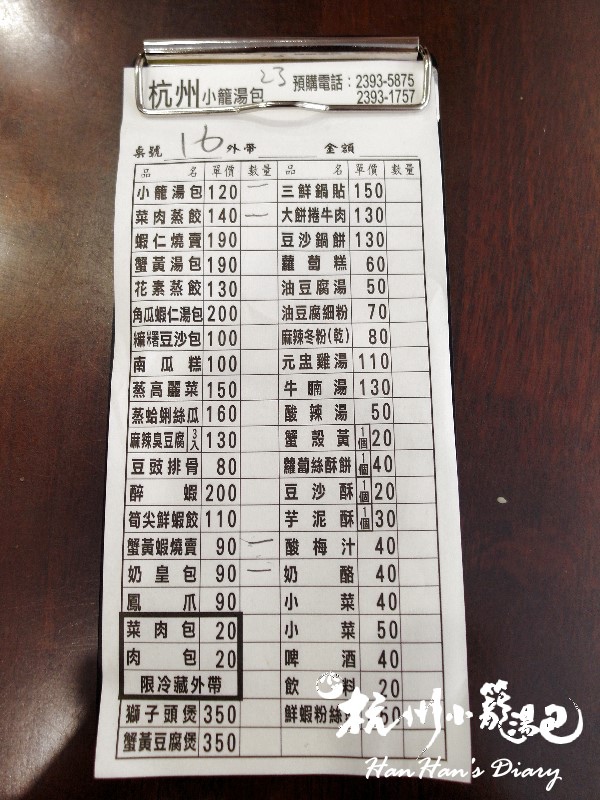 23
杭州小籠湯包 預購電話：2393-5875
2393-1757
桌號 16 外帶 金額
品名 單價 數量 品名 單價 數量
小籠湯包 120 一 三鮮鍋貼 150
菜肉蒸餃 140 一 大餅捲牛肉 130
蝦仁燒賣 190 豆沙鍋餅 130
蟹黃湯包 190 蘿蔔糕 60
花素蒸餃 130 油豆腐湯 50
角瓜蝦仁湯包 200 油豆腐細粉 70
豆沙包 100 麻辣冬粉(乾) 80
南瓜糕 100 元盅雞湯 110
蒸高麗菜 150 牛腩湯 130
蒸蛤蜊絲瓜 160 酸辣湯 50
麻辣臭豆腐 3入 130 蟹殼黃 1個 20
豆豉排骨 80 蘿蔔絲酥餅 1個 40
醉蝦 200 豆沙酥 1個 20
筍尖鮮蝦餃 110 芋泥酥 1個 30
蟹黃蝦燒賣 90 一 酸梅汁 40
奶皇包 90 一 奶酪 40
鳳爪 90 小菜 40
菜肉包 20 小菜 50
肉包 20 啤酒 40
限冷藏外帶 飲料 20
獅子頭煲 350 鮮蝦粉絲
蟹黃豆腐煲 350
杭州小籠湯包
HanHan's Diary